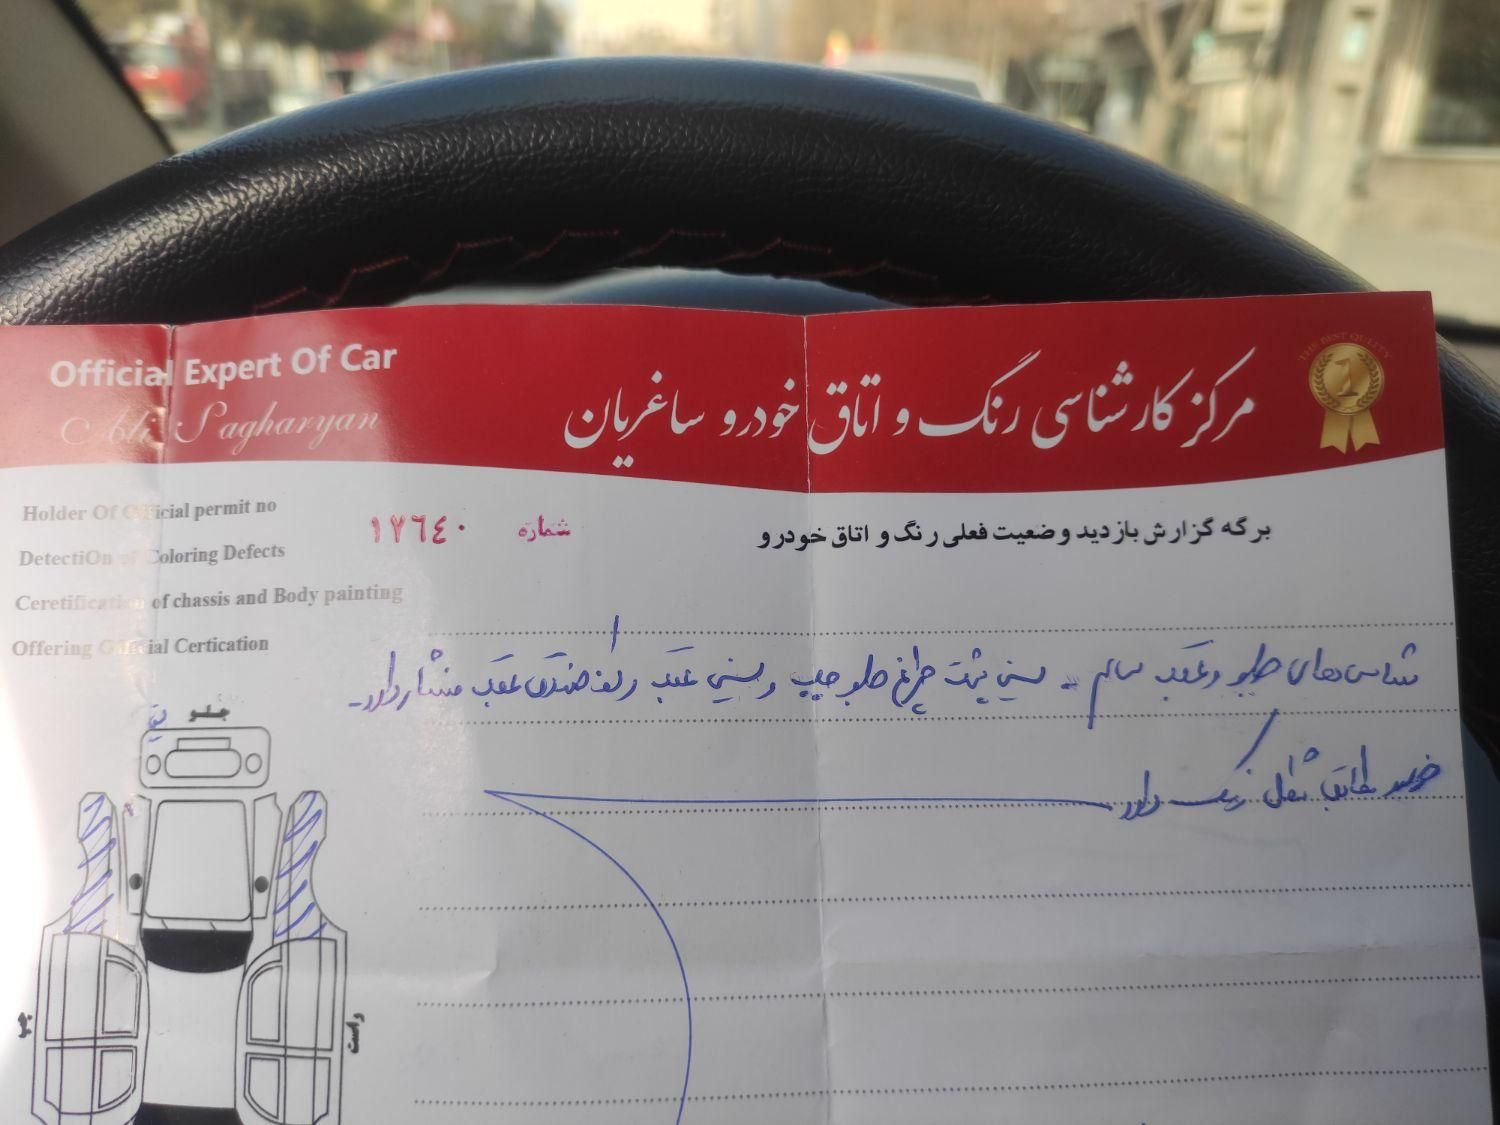 THE BEST QULITY
1
Official Expert Of Car
Ali Sagharyan
مرکز کارشناسی رنگ و اتاق خودرو ساغریان
Holder Of Official permit no
DetectiOn of Coloring Defects
Ceretification of chassis and Body painting
Offering Official Certication
شماره ۱۷٦٤۰
برگه گزارش بازدید وضعیت فعلی رنگ و اتاق خودرو
شاسی های جلو و عقب سالم - سینی پشت چراغ جلو چپ و سینی عقب و کف صندوق عقب فشار دارد
خودرو مطابق شکل رنگ دارد
جلو
راست